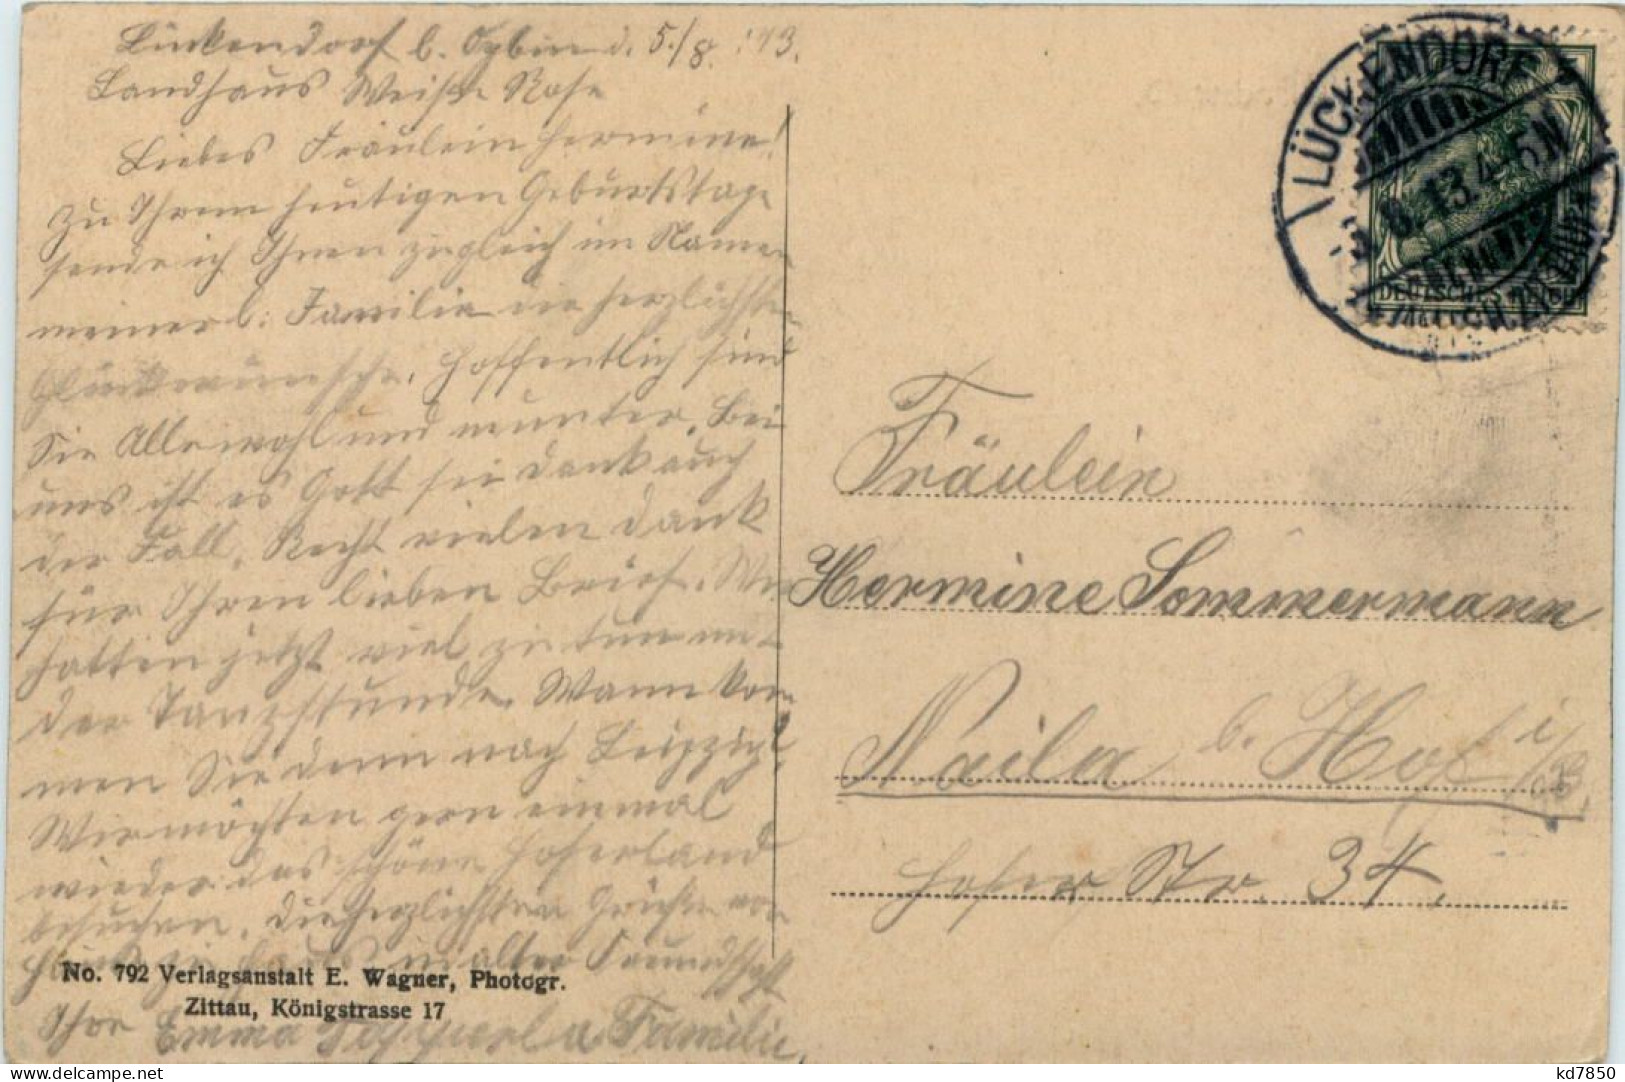 Lückendorf b. Oybin d. 5./8. 13.
Landhaus Weiße Rose
Liebes Fräulein Hermine!
Zu Ihrem heutigen Geburtstage
sende ich Ihnen zugleich im Namen
meiner l. Familie die herzlichsten
Glückwünsche. Hoffentlich sind
Sie Alle wohl und munter. Bei
uns ist es Gott sei dank auch
der Fall. Recht vielen dank
für Ihren lieben Brief. Wir
hatten jetzt viel zu tun mit
der Tanzstunde. Wann kom
men Sie denn nach Leipzig?
Wir möchten gern einmal
wieder das schöne Hoferland
besuchen. die herzlichsten Grüße von
Haus zu Haus in alter Freundschaft
Ihre Emma u. Familie.
No. 792 Verlagsanstalt E. Wagner, Photogr.
Zittau, Königstrasse 17
LÜCKENDORF
8. 13. 4-5N
DEUTSCHES REICH
Fräulein
Hermine Sommermann
Naila b. Hof i/B.
Hofer Str. 34.
kd7850